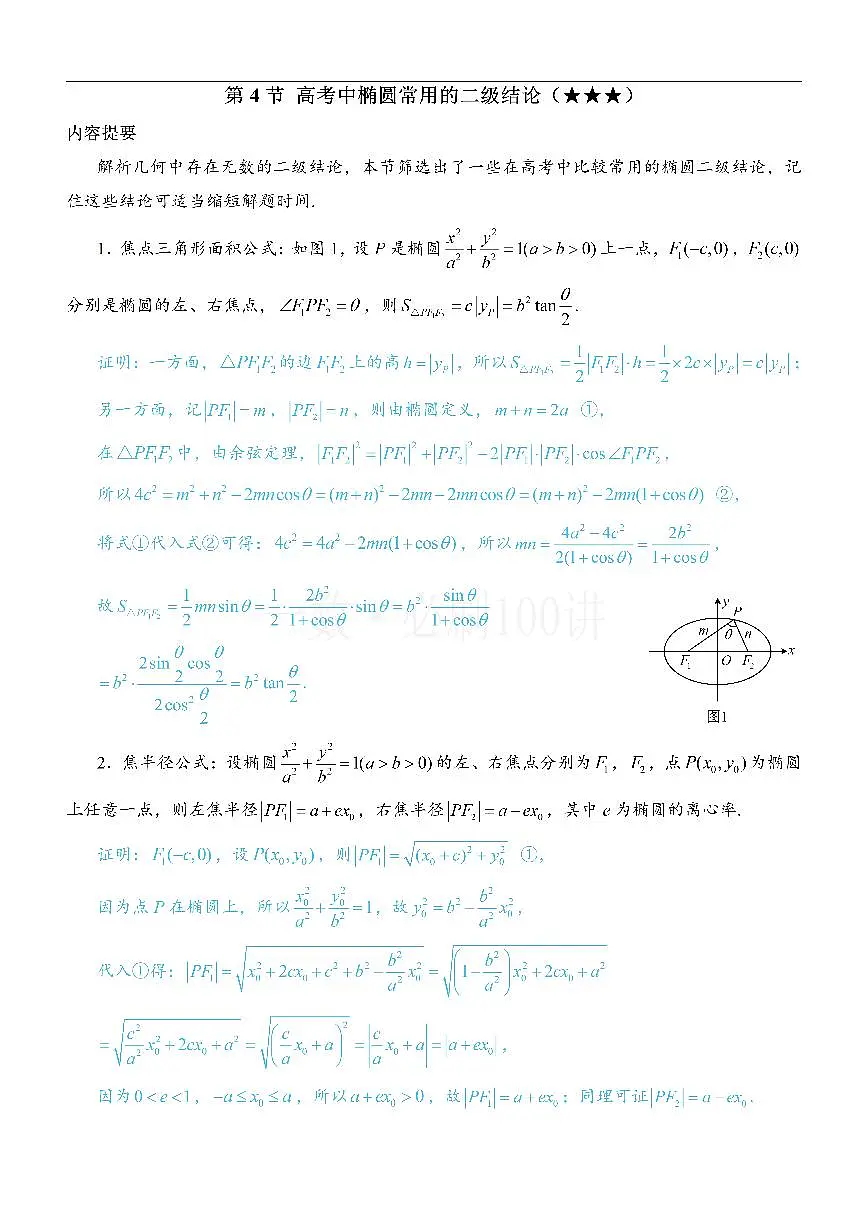 第 4 节 高考中椭圆常用的二级结论（★★★）
内容提要
解析几何中存在无数的二级结论，本节筛选出了一些在高考中比较常用的椭圆二级结论，记
住这些结论可适当缩短解题时间.
1．焦点三角形面积公式：如图 1，设 P 是椭圆 x²/a² + y²/b² = 1(a > b > 0) 上一点，F₁(−c,0)，F₂(c,0)
分别是椭圆的左、右焦点，∠F₁PF₂ = θ，则 S△PF₁F₂ = c|y_P| = b² tan θ/2.
证明：一方面，△PF₁F₂ 的边 F₁F₂ 上的高 h = |y_P|，所以 S△PF₁F₂ = 1/2|F₁F₂|·h = 1/2 × 2c × |y_P| = c|y_P|；
另一方面，记 |PF₁| = m，|PF₂| = n，则由椭圆定义，m + n = 2a ①，
在 △PF₁F₂ 中，由余弦定理，|F₁F₂|² = |PF₁|² + |PF₂|² − 2|PF₁|·|PF₂|·cos∠F₁PF₂，
所以 4c² = m² + n² − 2mn cosθ = (m + n)² − 2mn − 2mn cosθ = (m + n)² − 2mn(1 + cosθ) ②，
将式①代入式②可得：4c² = 4a² − 2mn(1 + cosθ)，所以 mn = (4a² − 4c²)/(2(1 + cosθ)) = 2b²/(1 + cosθ)，
故 S△PF₁F₂ = 1/2 mn sinθ = 1/2 · 2b²/(1 + cosθ) · sinθ = b² · sinθ/(1 + cosθ)
= b² · (2sin θ/2 cos θ/2)/(2cos² θ/2) = b² tan θ/2.
y
P
m θ n
F₁ O F₂ x
图1
2．焦半径公式：设椭圆 x²/a² + y²/b² = 1(a > b > 0) 的左、右焦点分别为 F₁，F₂，点 P(x₀, y₀) 为椭圆
上任意一点，则左焦半径 |PF₁| = a + ex₀，右焦半径 |PF₂| = a − ex₀，其中 e 为椭圆的离心率.
证明：F₁(−c,0)，设 P(x₀, y₀)，则 |PF₁| = √((x₀ + c)² + y₀²) ①，
因为点 P 在椭圆上，所以 x₀²/a² + y₀²/b² = 1，故 y₀² = b² − b²/a² x₀²，
代入①得：|PF₁| = √(x₀² + 2cx₀ + c² + b² − b²/a² x₀²) = √((1 − b²/a²)x₀² + 2cx₀ + a²)
= √(c²/a² x₀² + 2cx₀ + a²) = √((c/a x₀ + a)²) = |c/a x₀ + a| = |a + ex₀|，
因为 0 < e < 1，−a ≤ x₀ ≤ a，所以 a + ex₀ > 0，故 |PF₁| = a + ex₀；同理可证 |PF₂| = a − ex₀.